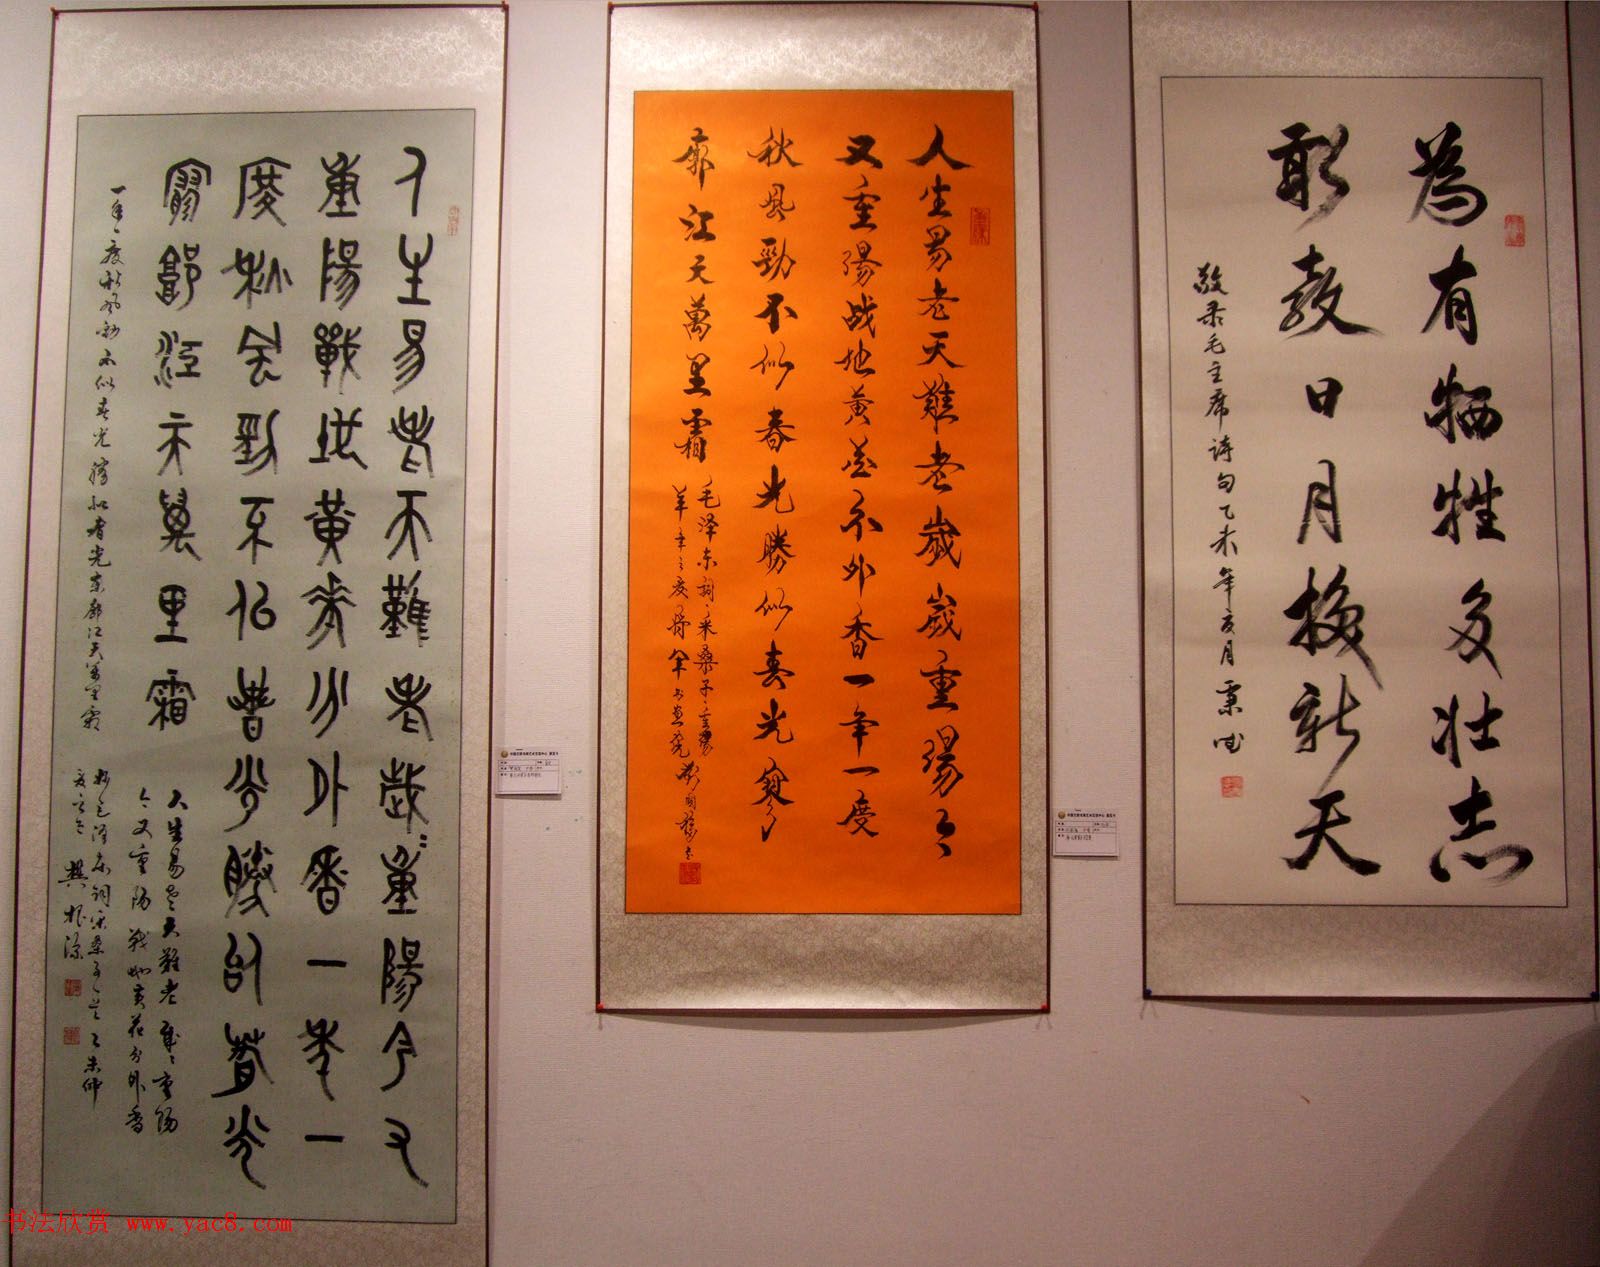 為有牺牲多壮志
敢教日月换新天
敬录毛主席诗句乙未年夏月秉
人生易老天難老歲歲重陽今
又重陽战地黄花分外香一年一度
秋風勁不似春光勝似春光寥
廓江天萬里霜
毛泽东词采桑子重陽
羊年之夏
人生易老天難老歲〻重陽今又
重陽戰地黄花分外香一年一
度秋風勁不似春光勝似春光
寥廓江天萬里霜
人生易老天難老歲〻重陽
今又重陽战地黄花分外香
一年一度秋风劲不似春光勝似春光寥廓江天万里霜
毛泽东词采桑子 乙未仲
夏
书法欣赏 www.yac8.com